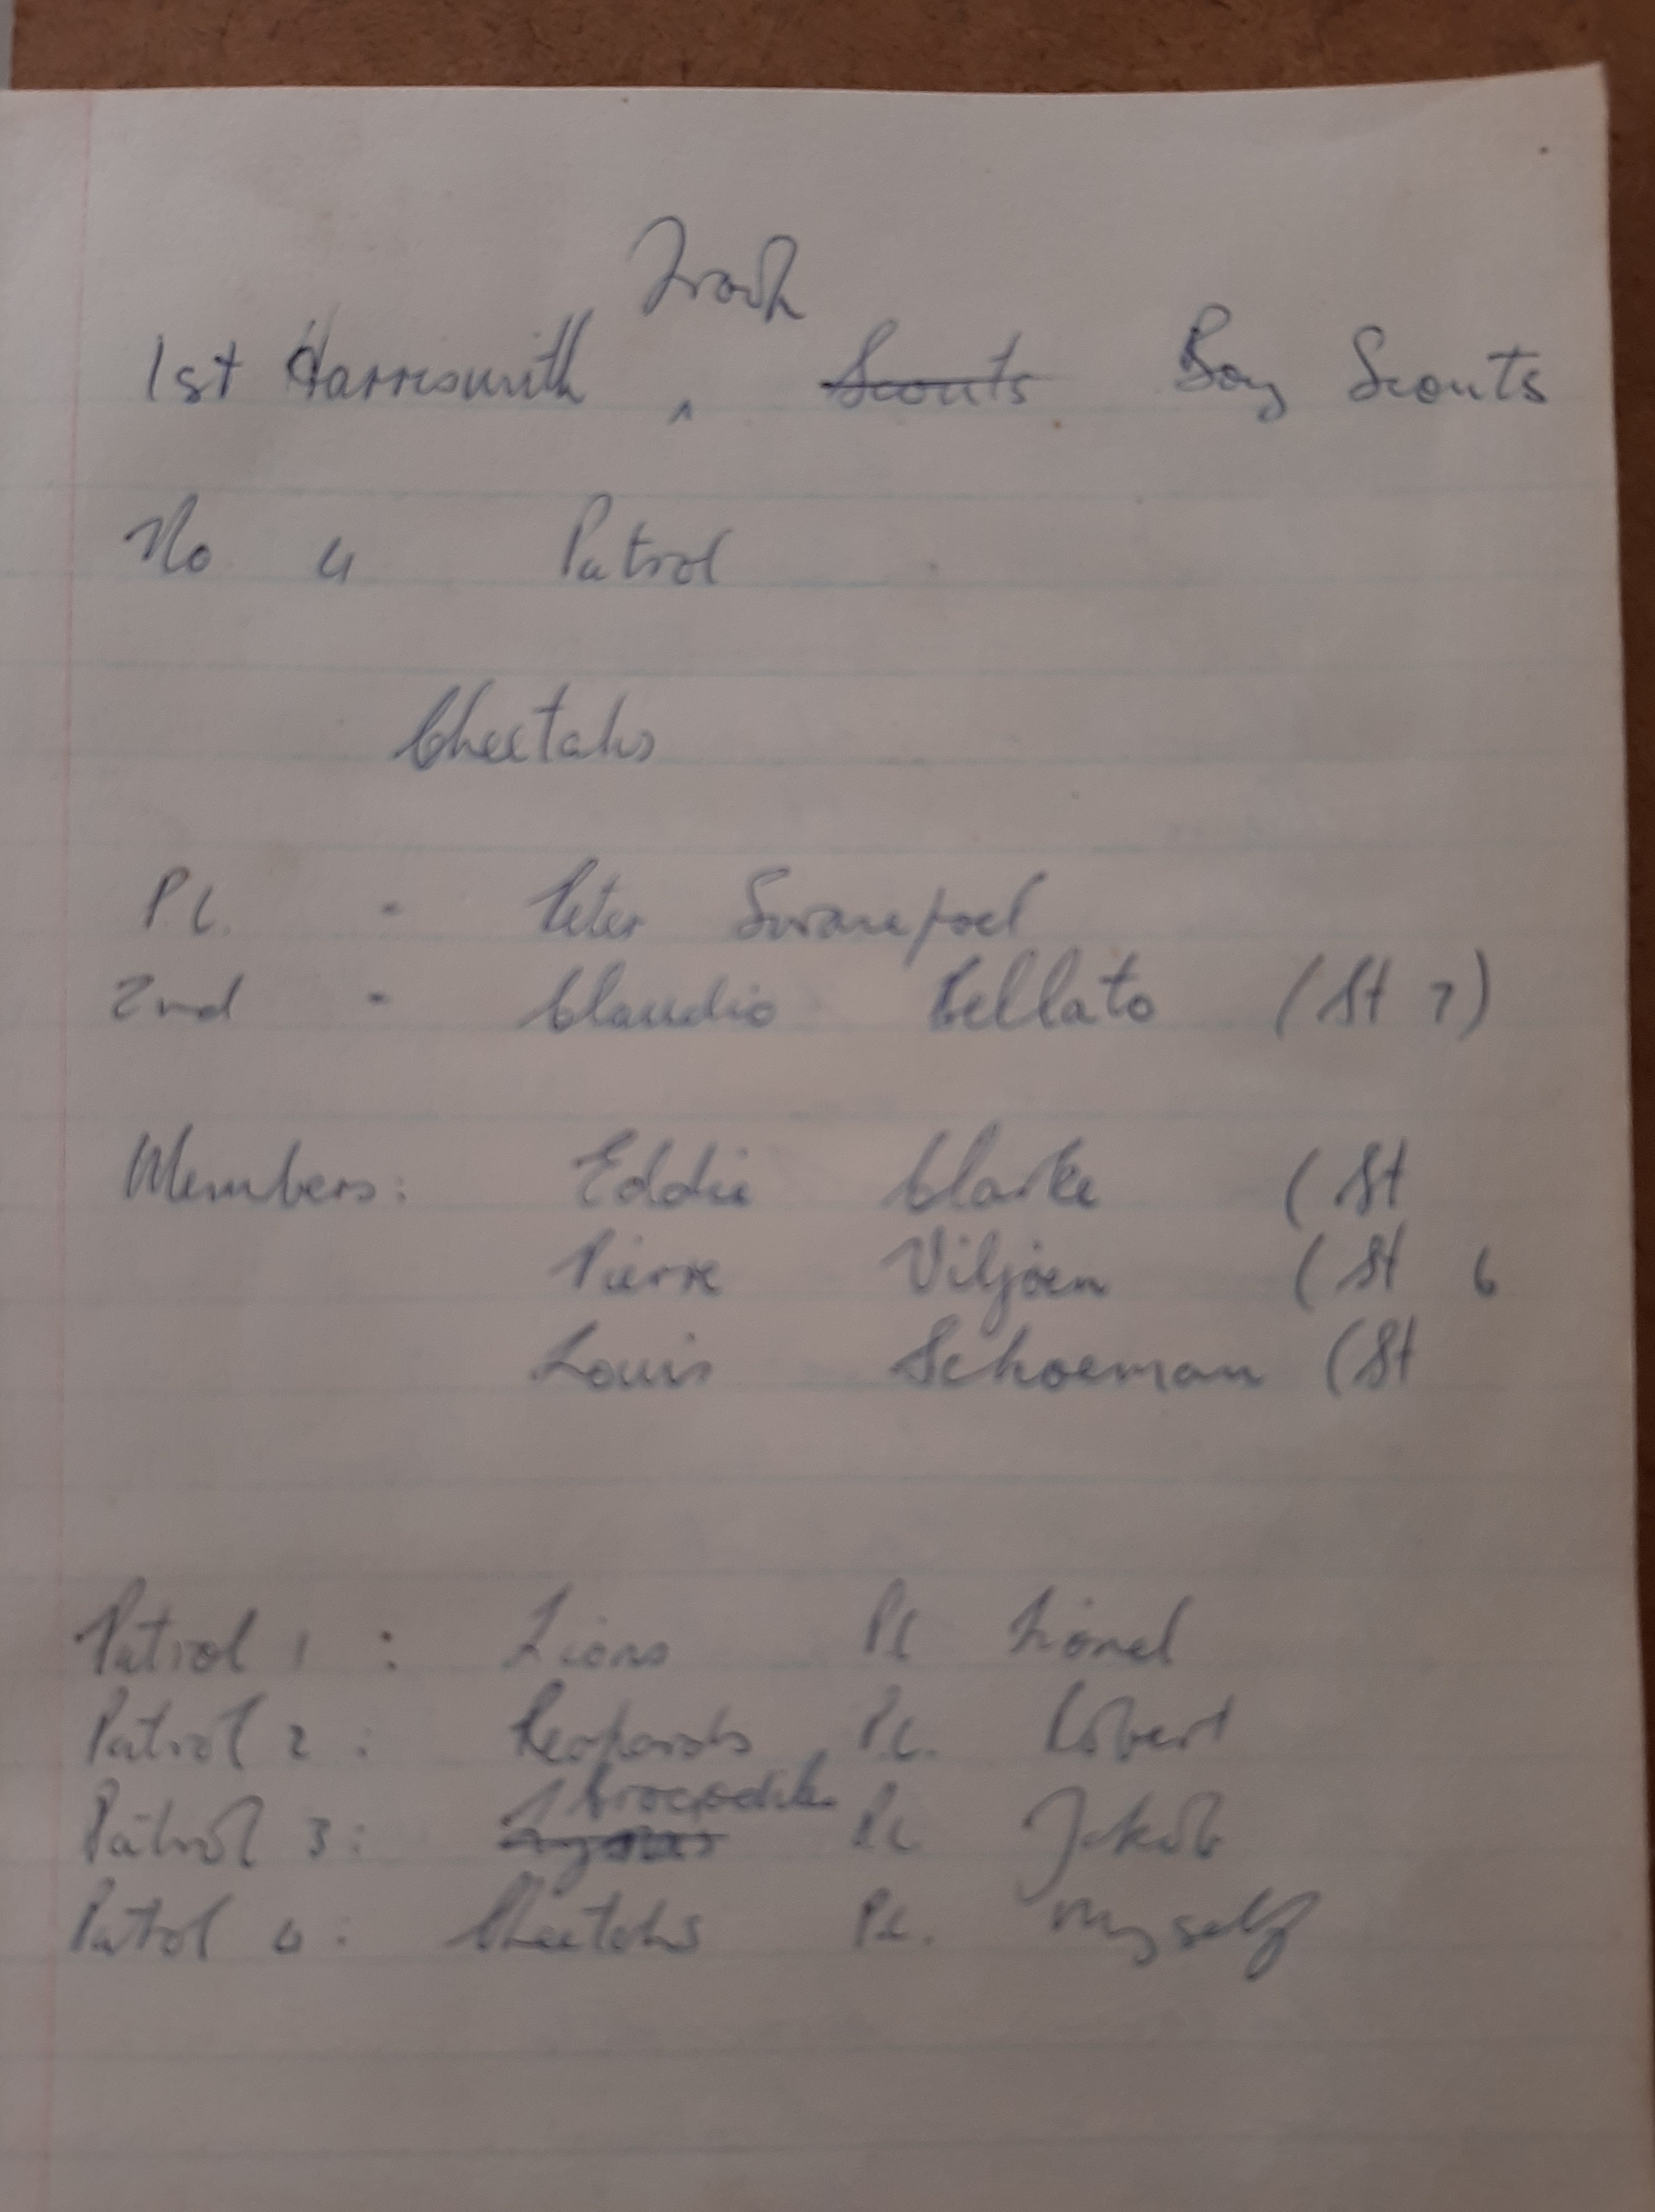 Troop
1st Harrismith ^ Scouts Boy Scouts
No 4 Patrol
Cheetahs
P.L. - Peter Swanepoel
2nd - Claudio Bellato (St 7)
Members: Eddie Clarke (St
Pierre Viljoen (St 6
Louis Schoeman (St
Patrol 1 : Lions PL Lionel
Patrol 2 : Leopards P.L. Robert
Crocodile
Patrol 3 : PL Jakob
Patrol 4 : Cheetahs P.L. Myself